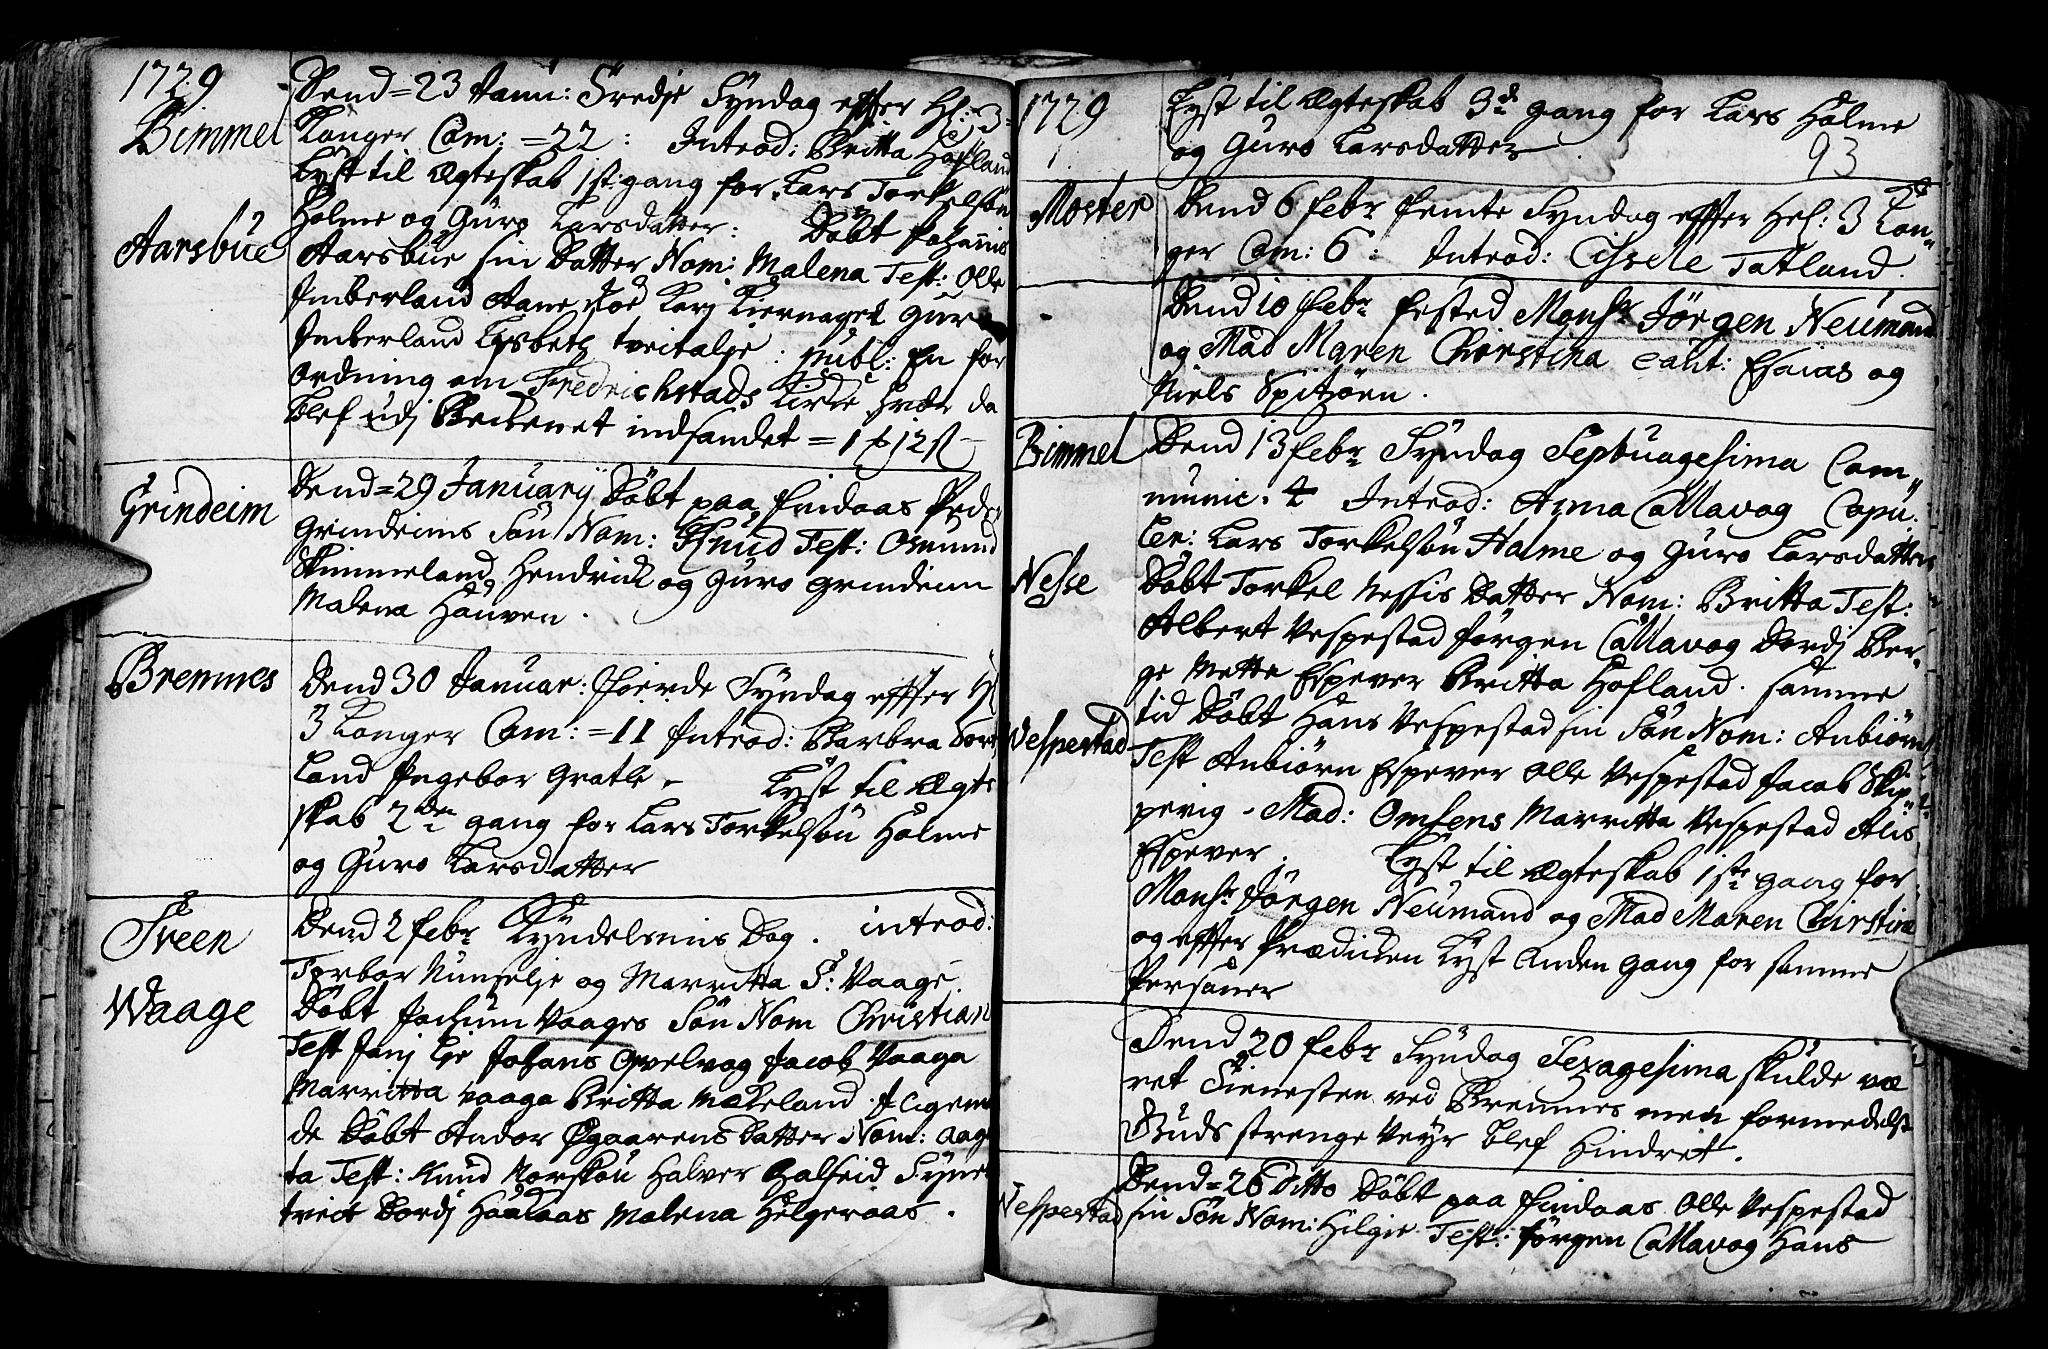 1729
Bimmel
Dend = 23 Janu: Tredje Syndag effter Hl: 3=
Konger Com: = 22 : Introd: Britta Hofland
Lyst til Ægteskab 1st: gang for Lars Torkelsøn
Holme og Guro Larsdatter: Døbt Johannis
Aarsbue
Aarsbue sin Datter Nom: Malena Test: Olle
Imberland Aane Kari Kiernagel Gur
Imberland Lisbeth tveitalje : publ: En for
ordning om Fredrichstads Kirke hvor da
blef udj Beckenet indsandet = 1 12 ß
Grindeim
Dend = 29 Januarij Døbt paa Findaas Peder
Grindeims Søn Nom: Knud Test: Omund
Skimmeland Hendrick og Guro Grindeim
Malena Hauven .
Bremnes
Dend 30 Januar: Fierde Syndag effter Hl
3 Konger Com: = 11 Introd: Barbra
land Ingebor Gratle - Lyst til Ægte
skab 2den gang for Lars Torkelsøn Holme
og Guro Larsdatter
Treen
Waage
Dend 2 febr Kyndelsmis Dag . introd:
Torbor Nunselje og Marritta S: Vaage.
Døbt Jochum Vaages Søn Nom Christian
Test Johans Jacob Vaaga
Marritta Vaaga Britta Mækeland . Ligem
de Døbt Andor Øgaarens Datter Nom: Aage
ta Test: Knud Norskou Halver Halseid Synes
tveit Dordj Haalaas Malena Helgeraas .
1729
Lyst til Ægteskab 3de gang for Lars Holme
og Guro Larsdatter
93
Moster
Dend 6 febr Femte Syndag effter Hel: 3 Kon„
ger Com: 6 : Introd: Cissele Totland .
Dend 10 febr fested Monsr Jörgen Neumand
og Mad Maren Chirstina caut: Esaias og
Niels Spitzøen .
Bimmel
Dend 13 febr Syndag Septuagesima Com„
munic. 4 Introd: Anna Callavog Copu
ler: Lars Torkelsøn Holme og Guro Larsdatter
Nesse
Døbt Torkel Nessis Datter Nom: Britta Test:
Albert Vespestad Jørgen Callavog Dordj Ber„
ge Mette Espever Britta Hofland . Samme
Vespestad
tid Døbt Hans Vespestad sin Søn Nom: Anbiørn
Test Anbiørn Espever Olle Vespestad Jacob Skip„
pevig - Mad: Omsens Marritta Vespestad Alis
Espever . Lyst til Ægteskab 1ste gang for
Monsr Jörgen Neumand og Mad Maren Chirstina
og effter Prædicken Lyst Anden gang for samme
Persaner
Dend 20 febr Syndag Sexagesima skulde væ
ret Tienesten ved Bremnes men formedelst
Guds strenge Veyr blef Hindret .
Vespestad
Dend = 26 Ditto Døbt paa Findaas Olle Vespestad
sin Søn Nom: Hilgie Test: Jørgen Callavog Hans